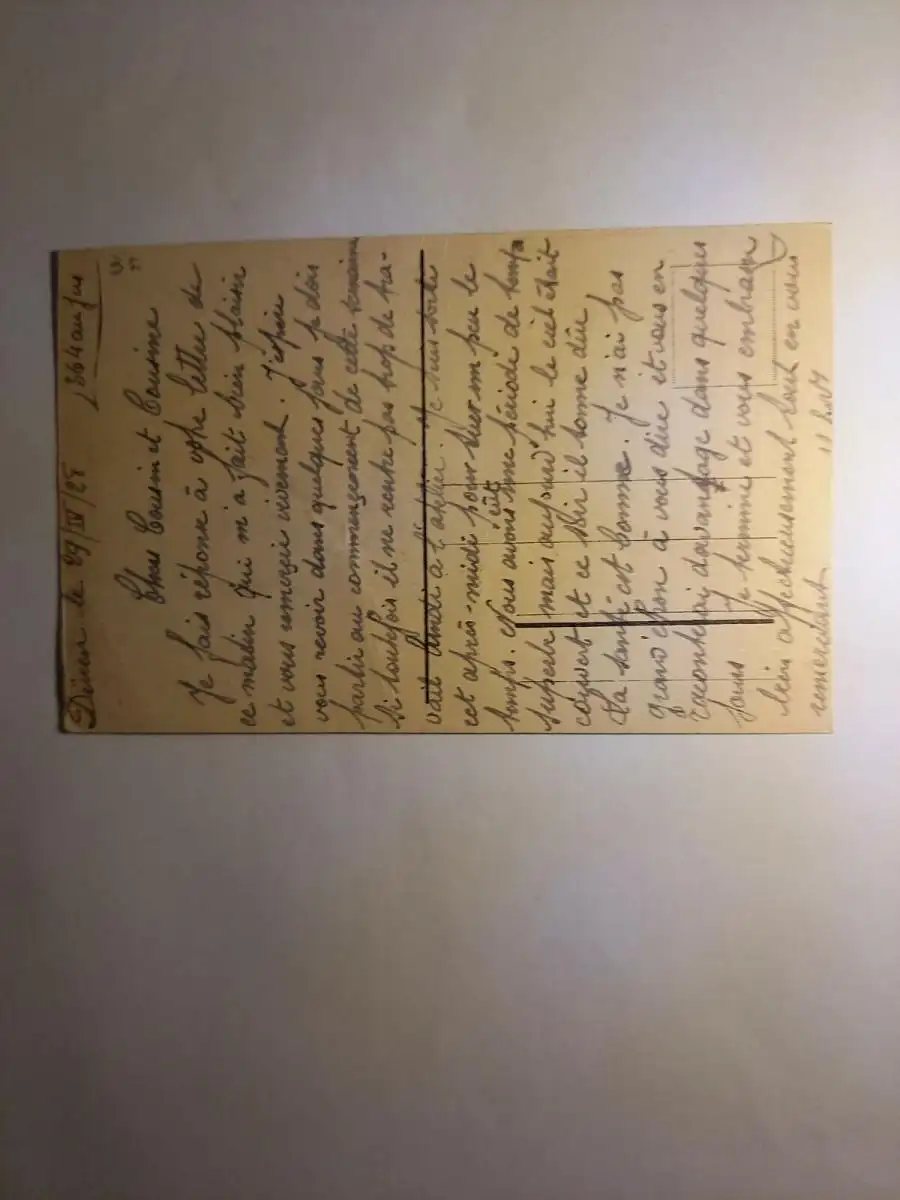 le 29/IV/25
Chers Cousin et Cousine
Je fais réponse à votre lettre de
ce matin qui m'a fait bien plaisir
et vous remercie vivement. J'espère
vous revoir dans quelques jours je dois
partir au commencement de cette semaine
si toutefois il ne rentre pas trop de tra-
vail lundi à l'atelier. Je suis sortie
cet après-midi pour sur un peu le
temps. Nous avons eût une période de temps
superbe mais aujourd'hui le ciel était
couvert et ce soir il tonne dûr
La santé est bonne. Je n'ai pas
grand chose à vous dire et vous en
raconterai davantage dans quelques
jours Je termine et vous embrasse
bien affectueusement tout en vous
remerciant